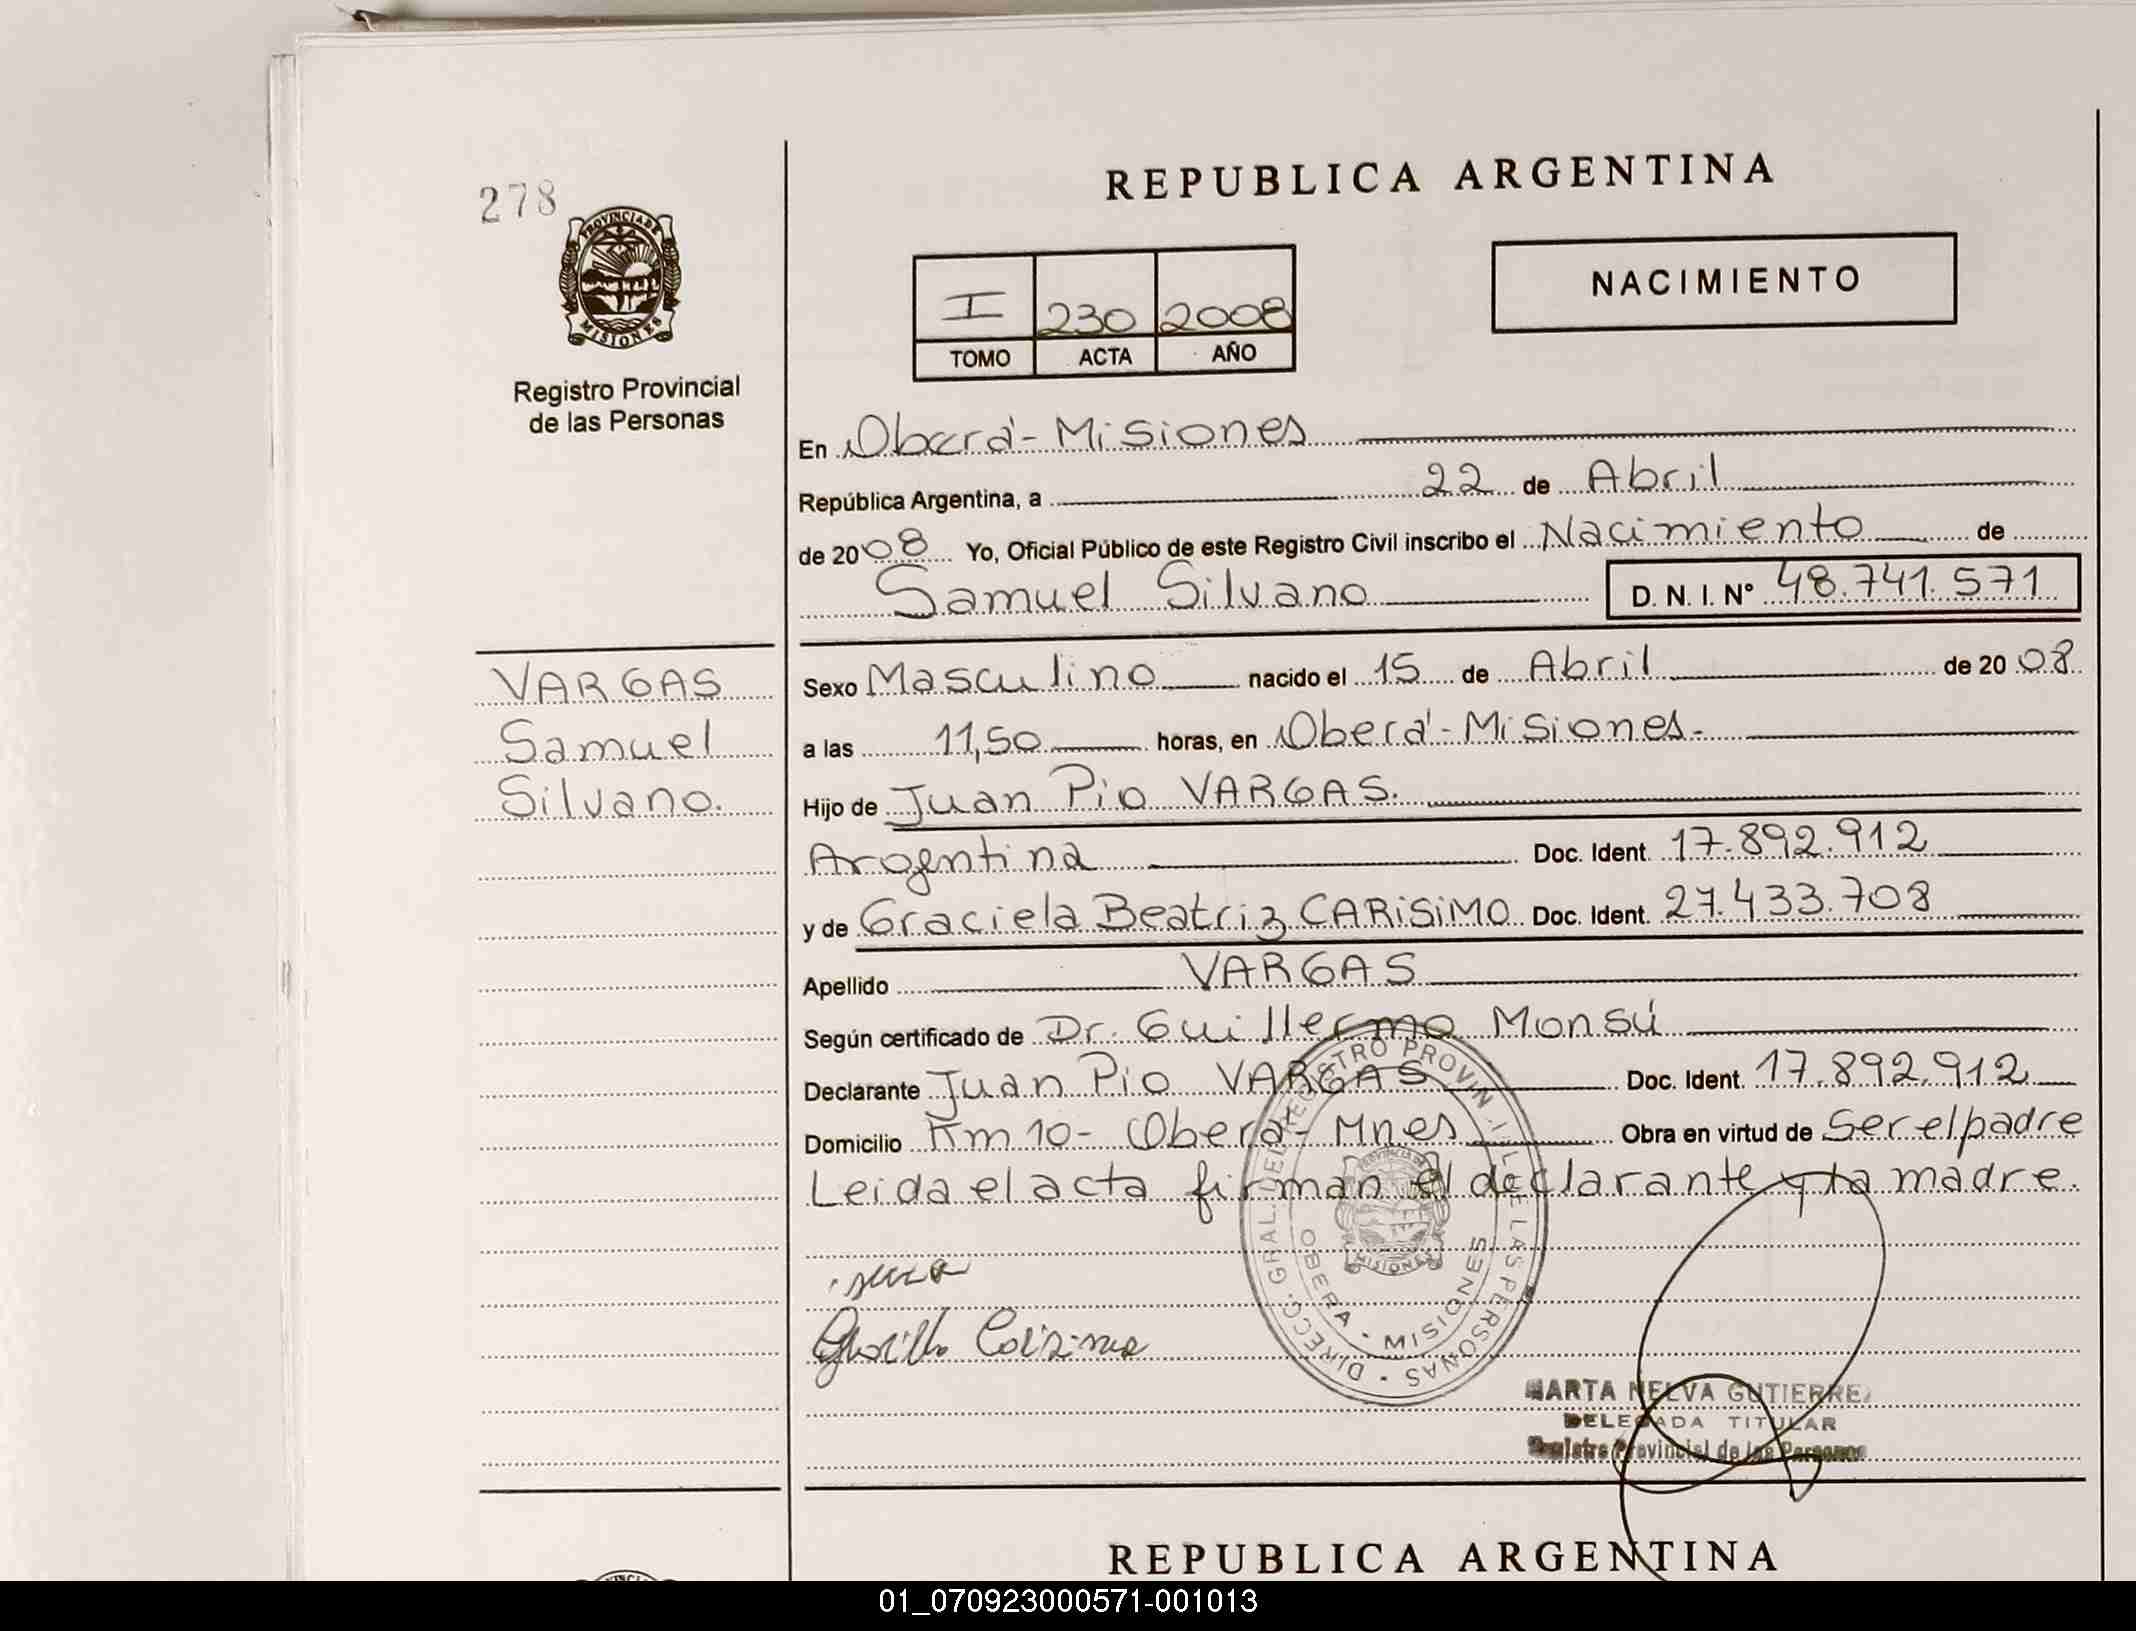 278
REPUBLICA ARGENTINA
PROVINCIA DE
MISIONES
Registro Provincial
de las Personas
I 230 2008
TOMO ACTA AÑO
NACIMIENTO
En Oberá - Misiones
República Argentina, a 22 de Abril
de 2008 Yo, Oficial Público de este Registro Civil inscribo el Nacimiento de
Samuel Silvano D. N. I. N° 48.741.571
VARGAS
Samuel
Silvano.
Sexo Masculino nacido el 15 de Abril de 2008
a las 11,50 horas, en Oberá - Misiones.
Hijo de Juan Pio VARGAS.
Argentina Doc. Ident. 17.892.912
y de Graciela Beatriz CARISIMO Doc. Ident. 27.433.708
Apellido VARGAS
Según certificado de Dr. Guillermo Monsú
Declarante Juan Pio VARGAS Doc. Ident. 17.892.912
Domicilio Km 10 - Oberá - Mnes Obra en virtud de Ser el padre
Leida el acta firman el declarante y la madre.
DIRECC. GRAL. DEL REGISTRO PROVIN. DE LAS PERSONAS
OBERA - MISIONES
PROVINCIA DE
MISIONES
MARTA NELVA GUTIERREZ
DELEGADA TITULAR
Registro Provincial de las Personas
REPUBLICA ARGENTINA
01_070923000571-001013